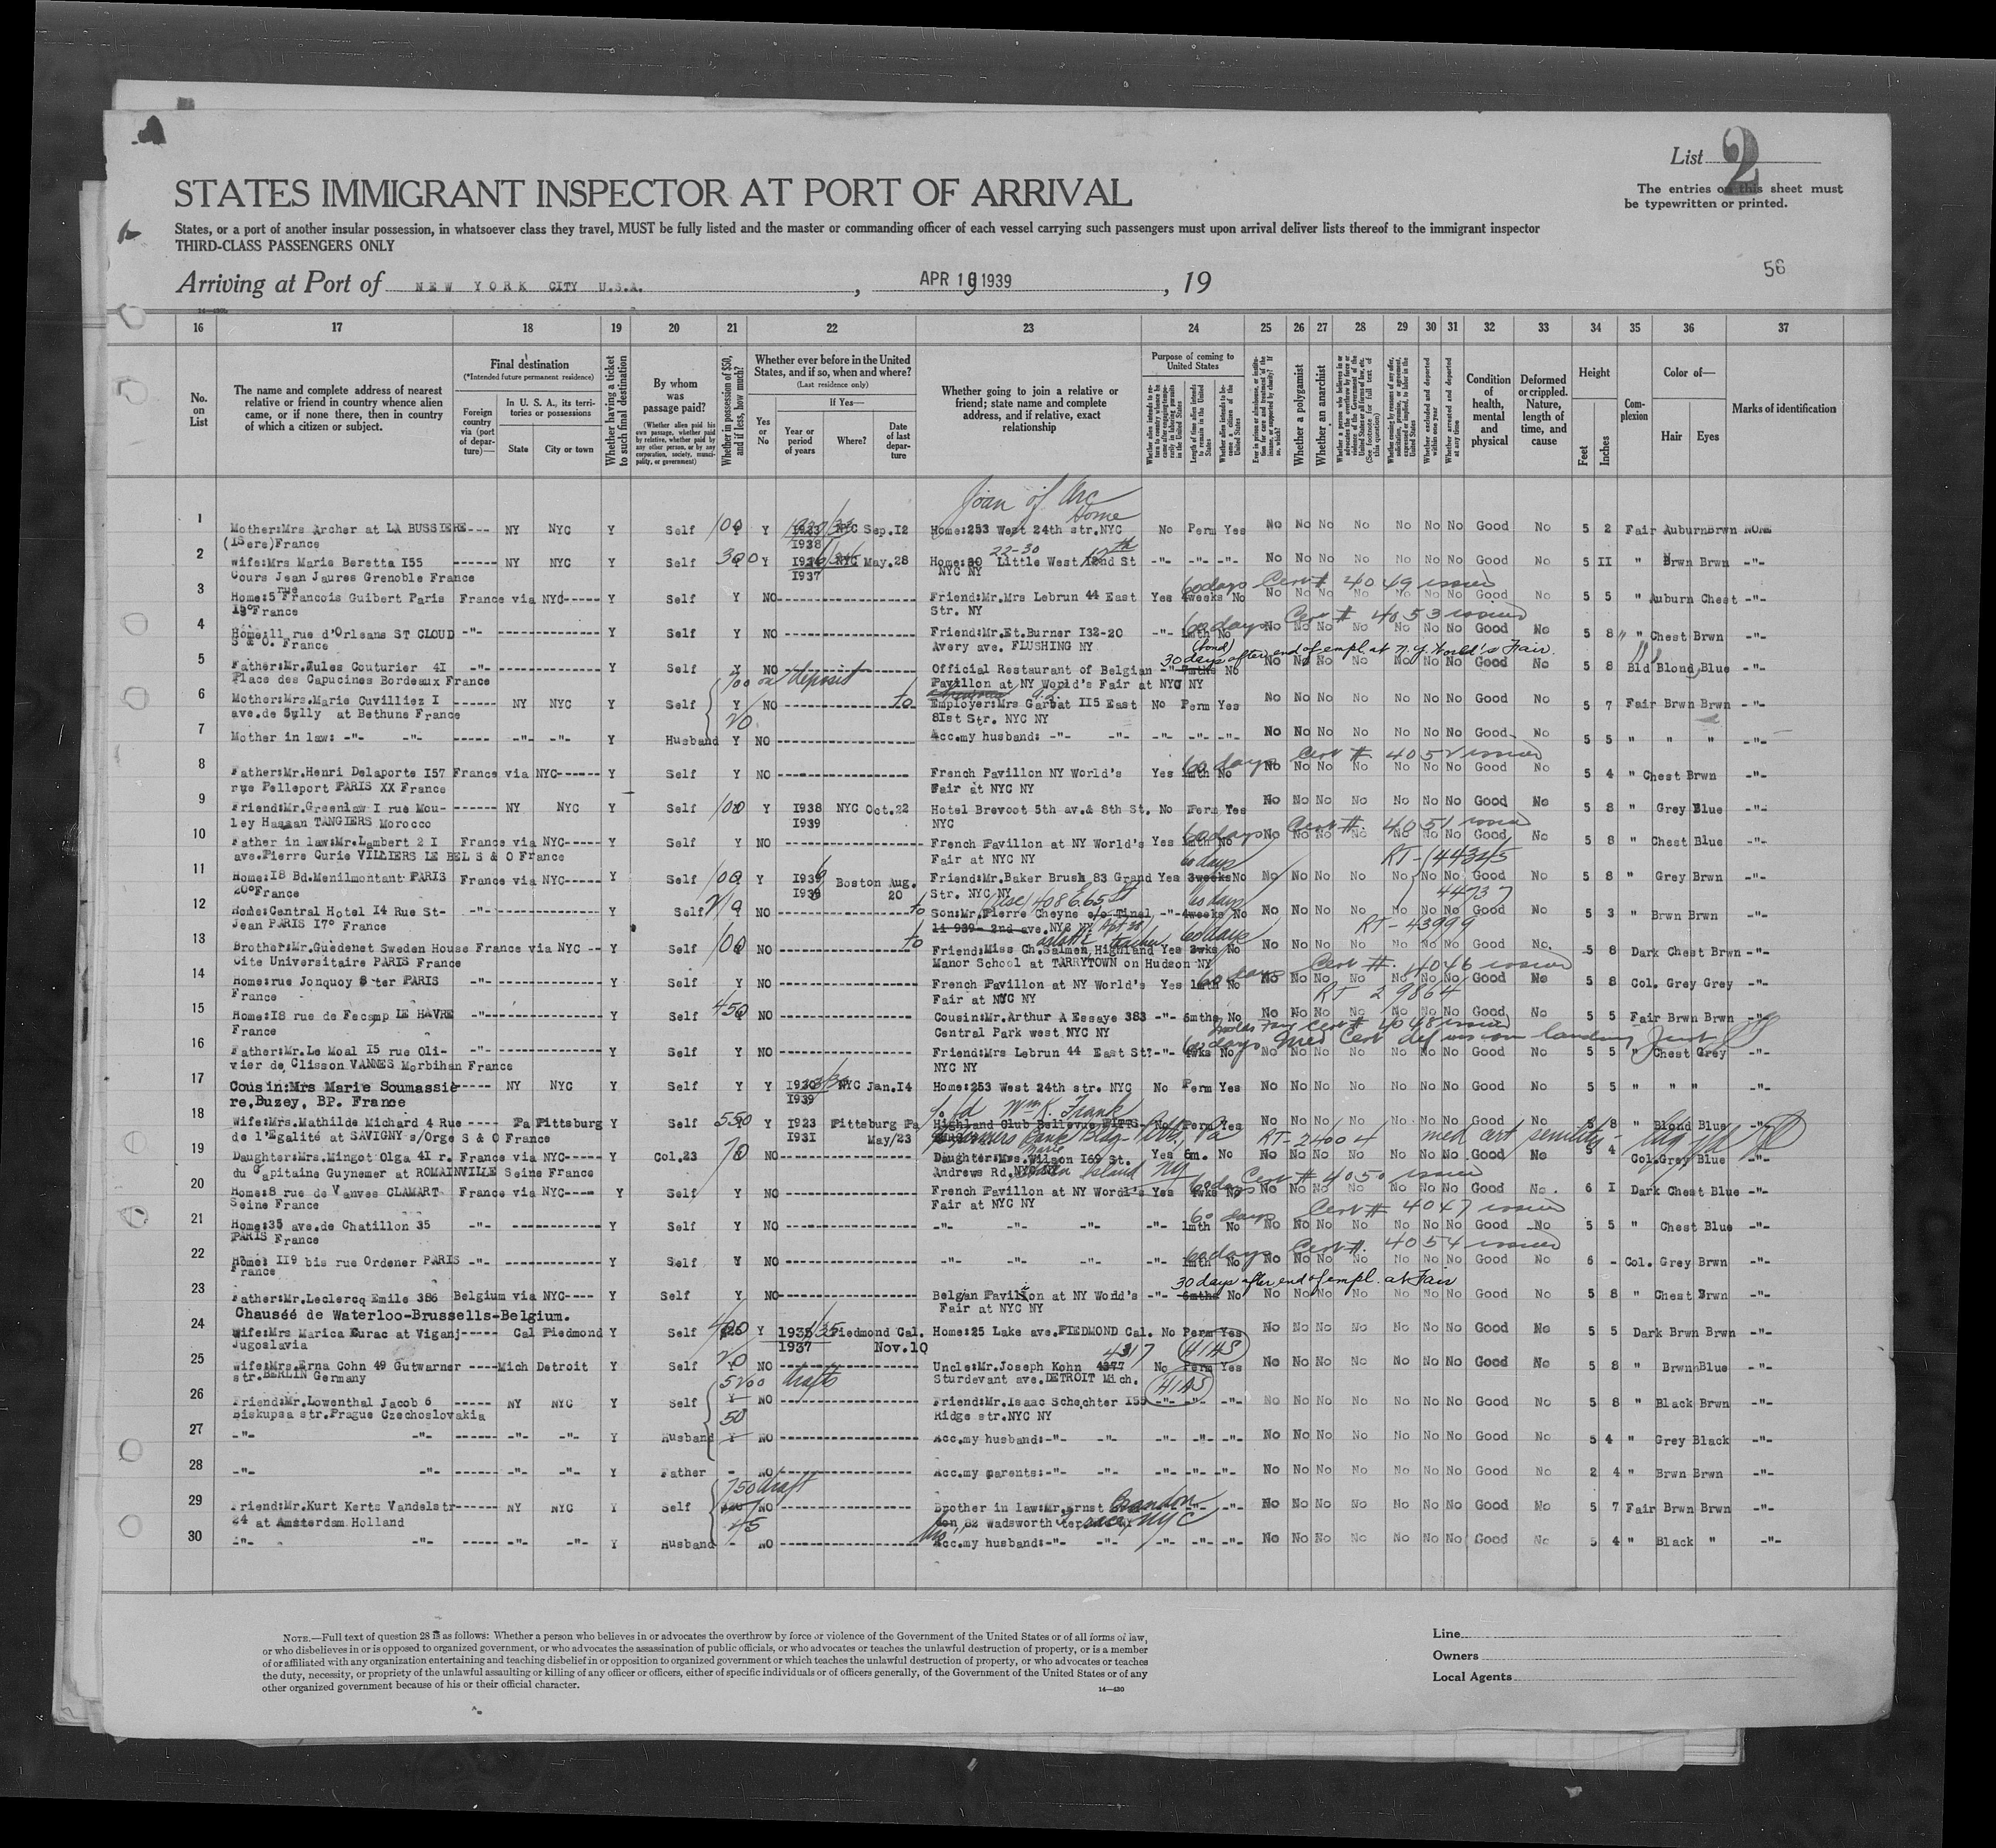 List 2
The entries on this sheet must
be typewritten or printed.
STATES IMMIGRANT INSPECTOR AT PORT OF ARRIVAL
States, or a port of another insular possession, in whatsoever class they travel, MUST be fully listed and the master or commanding officer of each vessel carrying such passengers must upon arrival deliver lists thereof to the immigrant inspector
THIRD-CLASS PASSENGERS ONLY
56
Arriving at Port of NEW YORK CITY U.S.A. , APR 1939 , 19
16 17 18 19 20 21 22 23 24 25 26 27 28 29 30 31 32 33 34 35 36 37
No. on List
The name and complete address of nearest relative or friend in country whence alien came, or if none there, then in country of which a citizen or subject.
Final destination
(*Intended future permanent residence)
Foreign country via (port of departure)—
In U. S. A., its territories or possessions
State
City or town
Whether having a ticket to such final destination
By whom was passage paid?
(Whether alien paid his own passage, whether paid by relative, whether paid by any other person, or by any corporation, society, municipality, or government)
Whether in possession of $50, and if less, how much?
Whether ever before in the United States, and if so, when and where?
(Last residence only)
Yes or No
If Yes—
Year or period of years
Where?
Date of last departure
Whether going to join a relative or friend; state name and complete address, and if relative, exact relationship
Purpose of coming to United States
Whether a polygamist
Whether an anarchist
Condition of health, mental and physical
Deformed or crippled. Nature, length of time, and cause
Height
Feet
Inches
Complexion
Color of—
Hair
Eyes
Marks of identification
Joan of Arc
Home
1 Mother:Mrs Archer at LA BUSSIERE--- NY NYC Y Self 100 Y Sep.12 Home:253 West 24th str.NYC No Perm Yes No No No No No No No Good No 5 2 Fair Auburn Brwn NONE
(Isere)France 1938
2 Wife:Mrs Marie Beretta I55 ------ NY NYC Y Self 300 Y May.28 Little West St -"- -"- -"- No No No No No No No Good No 5 II " Brwn Brwn -"-
Cours Jean Jaures Grenoble France 1937 NYC NY
60 days Cert # 4049 issued
3 Home:5 rue Francois Guibert Paris France via NYC----- Y Self Y NO Friend:Mr.Mrs Lebrun 44 East Yes 4weeks No No No No No No No No Good No 5 5 " Auburn Chest -"-
15°France Str. NY
60 days Cert # 4053 issued
4 Home:11 rue d'Orleans ST CLOUD -"- Y Self Y NO Friend:Mr.Et.Burner I32-20 -"- 1mth No No No No No No No No Good No 5 8 " Chest Brwn -"-
S & O. France Avery ave. FLUSHING NY
(bond)
30 days after end of empl. at N.Y. World's Fair.
5 Father:Mr.Jules Couturier 4I -"- Y Self Y NO Official Restaurant of Belgian -"- 7mths No No No No No No No No Good No 5 8 Bld Blond Blue -"-
Place des Capucines Bordeaux France Pavillon at NY World's Fair at NYC NY
on deposit
6 Mother:Mrs.Marie Cuvilliez I ------ NY NYC Y Self Y NO Employer:Mrs Garbat II5 East No Perm Yes No No No No No No No Good No 5 7 Fair Brwn Brwn -"-
ave.de Sully at Bethune France 81st Str. NYC NY
7 Mother in law: -"- -"- ----- -"- -"- Y Husband Y NO Acc.my husband: -"- -"- -"- -"- -"- No No No No No No No Good No 5 5 " " " -"-
60 days Cert # 4052 issued
8 Father:Mr.Henri Delaporte I57 France via NYC------ Y Self Y NO French Pavillon NY World's Yes 1mth No No No No No No No No Good No 5 4 " Chest Brwn -"-
rue Pelleport PARIS XX France Fair at NYC NY
9 Friend:Mr.Greenlaw I rue Mou- ------ NY NYC Y Self 100 Y 1938 NYC Oct.22 Hotel Brevoot 5th av.& 8th St. No Perm Yes No No No No No No No Good No 5 8 " Grey Blue -"-
ley Hassan TANGIERS Morocco 1939 NYC
60 days Cert #. 4051 issued
10 Father in law:Mr.Lambert 2 I France via NYC----- Y Self Y NO French Pavilion at NY World's Yes 1mth No No No No No No No No Good No 5 8 " Chest Blue -"-
ave.Pierre Curie VILLIERS LE BEL S & O France Fair at NYC NY
60 days RT-
11 Home:I8 Bd.Menilmontant PARIS France via NYC----- Y Self 100 Y Boston Aug. 20 Friend:Mr.Baker Brush 83 Grand Yes 3weeks No No No No No No No No Good No 5 8 " Grey Brwn -"-
20°France Str. NYC NY
44737
12 Home:Central Hotel I4 Rue St- -"- Y Self NO Son:Mr.Pierre Cheyne c/o Tinel -"- 4weeks No No No No No No No No Good No 5 3 " Brwn Brwn -"-
Jean PARIS I7° France 939 2nd ave. NYC NY
RT-43999
13 Brother:Mr.Guedenet Sweden House France via NYC -- Y Self 100 NO Friend:Miss Ch.Salmen,Highland Yes 3wks No No No No No No No No Good No. 5 8 Dark Chest Brwn -"-
Cite Universitaire PARIS France Manor School at TARRYTOWN on Hudson NY
60 days Cert #. 4046 issued
14 Home:rue Jonquoy 8 ter PARIS -"- Y Self Y NO French Pavillon at NY World's Yes 1mth No No No No No No No No Good No 5 8 Col. Grey Grey -"-
France Fair at NYC NY
RT 29864
15 Home:I8 rue de Fecamp LE HAVRE -"- Y Self 450 NO Cousin:Mr.Arthur A Essaye 383 -"- 6mths No No No No No No No No Good No 5 5 Fair Brwn Brwn -"-
France Central Park west NYC NY
Cert # 4048 issued
60 days
16 Father:Mr.Le Moal I5 rue Oli- -"- Y Self Y NO Friend:Mrs Lebrun 44 East St? -"- 4wks No No No No No No No No Good No 5 5 " Chest Grey -"-
vier de Clisson VANNES Morbihan France NYC NY
17 Cousin:Mrs Marie Soumassie----- NY NYC Y Self Y Y NYC Jan.I4 Home:253 West 24th str. NYC No Perm Yes No No No No No No No Good No 5 5 " " " -"-
re,Buzey, BP. France 1939
Wm K. Frank
18 Wife:Mrs.Mathilde Michard 4 Rue ---- Pa Pittsburg Y Self 550 Y I923 Pittsburg Pa Highland Club Bellevue PITTS No Perm Yes No No No No No No No Good No 5 8 " Blond Blue -"-
de l'Egalité at SAVIGNY s/Orge S & O France I93I May/23 Farmers Bank Bldg Pitts, Pa
RT-24004 med cert senility
19 Daughter:Mrs.Mingot Olga 4I r. France via NYC---- Y Col.23 70 NO Daughter:Mrs.Wilson I69 St. Yes 6m. No No No No No No No No Good No 5 4 Col.Grey Blue -"-
du Capitaine Guynemer at ROMAINVILLE Seine France Andrews Rd. Island NY
60 days Cert # 4050 issued
20 Home:8 rue de Vanves CLAMART France via NYC---- Y Self Y NO French Pavillon at NY World's Yes 4wks No No No No No No No No Good No. 6 I Dark Chest Blue -"-
Seine France Fair at NYC NY
60 days Cert # 4047 issued
21 Home:35 ave.de Chatillon 35 -"- Y Self Y NO -"- -"- -"- -"- 1mth No No No No No No No No Good No 5 5 " Chest Blue -"-
PARIS France
60 days Cert #. 4054 issued
22 Home: II9 bis rue Ordener PARIS -"- Y Self Y NO -"- -"- -"- -"- 1mth No No No No No No No No Good No 6 - Col. Grey Brwn -"-
France
30 days after end of empl. at Fair
23 Father:Mr.Leclercq Emile 386 Belgium via NYC---- Y Self Y NO Belgian Pavilion at NY World's -"- 6mths No No No No No No No No Good No 5 8 " Chest Brwn -"-
Chauséé de Waterloo-Brussells-Belgium. Fair at NYC NY
24 Wife:Mrs Marica Eurac at Viganj----- Cal Piedmond Y Self 400 Y Piedmond Cal. Home:25 Lake ave.PIEDMOND Cal. No Perm Yes No No No No No No No Good No 5 5 Dark Brwn Brwn -"-
Jugoslavia 1937 Nov.10
HIAS
25 Wife:Mrs.Erna Cohn 49 Gutwarner ----Mich Detroit Y Self NO Uncle:Mr.Joseph Kohn 4317 No Perm Yes No No No No No No No Good No 5 8 " Brwn Blue -"-
str.BERLIN Germany Sturdevant ave.DETROIT Mich.
drafts HIAS
26 Friend:Mr.Lowenthal Jacob 6 ----- NY NYC Y Self Y NO Friend:Mr.Isaac Schechter I55 -"- -"- -"- No No No No No No No Good No 5 8 " Black Brwn -"-
Biskupsa str.Prague Czechoslovakia 50 Ridge str.NYC NY
27 -"- -"- ------ -"- -"- Y Husband Y NO Acc.my husband:-"- -"- -"- -"- -"- No No No No No No No Good No 5 4 " Grey Black -"-
28 -"- -"- ------ -"- -"- Y Father - NO Acc.my parents:-"- -"- -"- -"- -"- No No No No No No No Good No 2 4 " Brwn Brwn -"-
750 draft
29 Friend:Mr.Kurt Kerts Vandelstr------ NY NYC Y Self NO Brother in law:Mr.Ernst Brandon -"- -"- No No No No No No No Good No 5 7 Fair Brwn Brwn -"-
24 at Amsterdam Holland 45 82 Wadsworth Terrace, NYC
30 -"- -"- ----- -"- -"- Y Husband - NO Acc.my husband:-"- -"- -"- -"- -"- No No No No No No No Good No 5 4 " Black " -"-
NOTE.—Full text of question 28 is as follows: Whether a person who believes in or advocates the overthrow by force or violence of the Government of the United States or of all forms of law,
or who disbelieves in or is opposed to organized government, or who advocates the assassination of public officials, or who advocates or teaches the unlawful destruction of property, or is a member
of or affiliated with any organization entertaining and teaching disbelief in or opposition to organized government or which teaches the unlawful destruction of property, or who advocates or teaches
the duty, necessity, or propriety of the unlawful assaulting or killing of any officer or officers, either of specific individuals or of officers generally, of the Government of the United States or of any
other organized government because of his or their official character.
14—430
Line
Owners
Local Agents